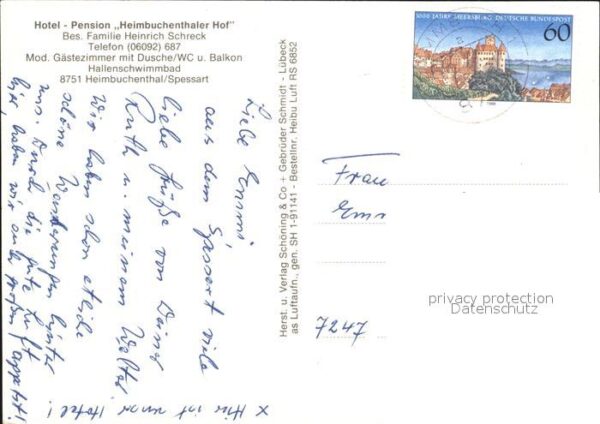 Hotel - Pension „Heimbuchenthaler Hof"
Bes. Familie Heinrich Schreck
Telefon (06092) 687
Mod. Gästezimmer mit Dusche/WC u. Balkon
Hallenschwimmbad
8751 Heimbuchenthal/Spessart
Liebe
aus dem Spessart viele
liebe Grüße von Deiner
Ruth u. meinem Walter.
Wir haben schon etliche
schöne Wanderungen hinter
uns. Durch die gute Luft
hier, haben wir
x Hier ist unser Hotel!
Herst. u. Verlag Schöning & Co + Gebrüder Schmidt - Lübeck
as Luftaufn., gen. SH 1-91141 - Bestellnr. Heibu Luft RS 6852
1000 JAHRE MEERSBURG DEUTSCHE BUNDESPOST
60
Frau
7247
privacy protection
Datenschutz